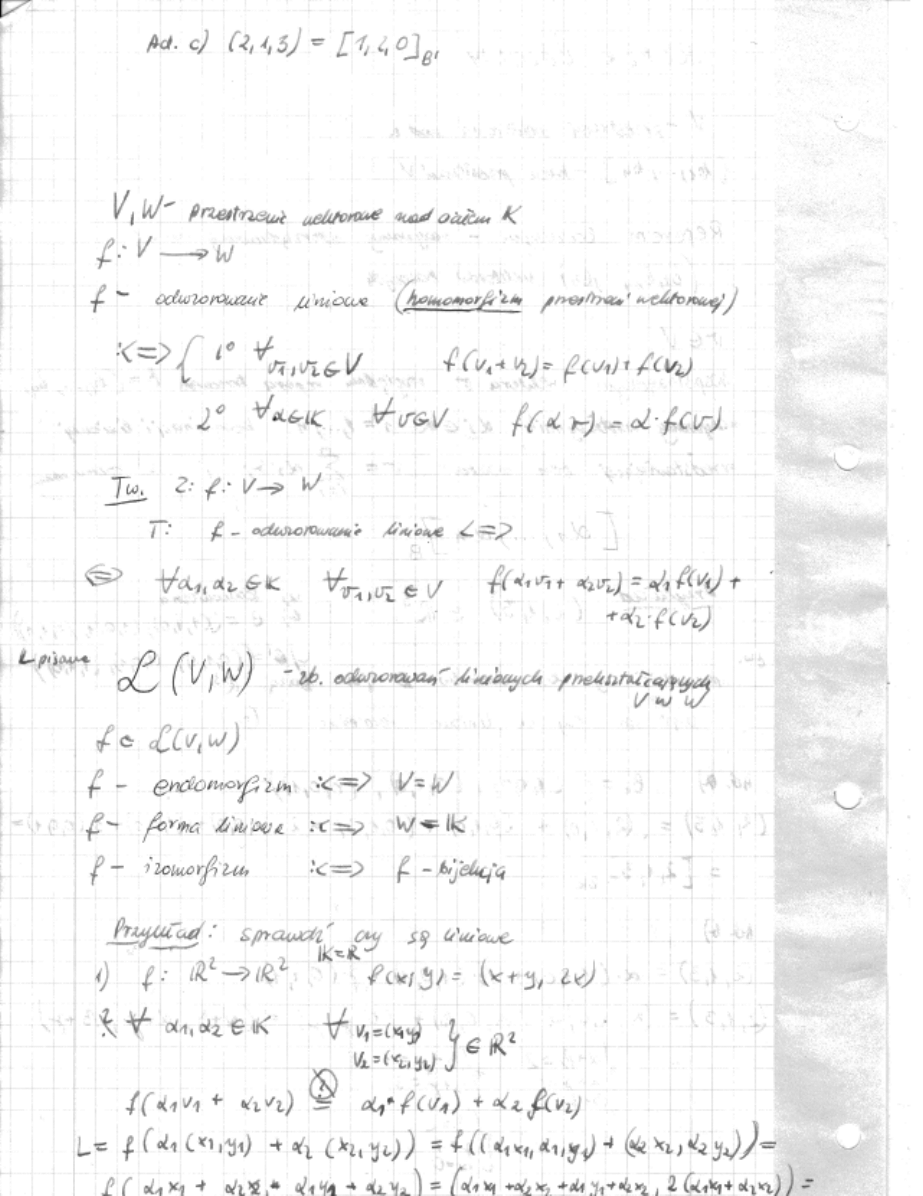 Ad. c) (2,1,3) = [1,2,0]_B'
V, W - przestrzenie wektorowe nad ciałem K
f: V → W
f - odwzorowanie liniowe (homomorfizm przestrzeni wektorowej)
:<=> { 1° ∀ v1,v2 ∈ V f(v1+v2) = f(v1) + f(v2)
2° ∀ α∈K ∀ v∈V f(αv) = α·f(v)
Tw. Z: f: V → W
T: f - odwzorowanie liniowe <=>
<=> ∀ α1, α2 ∈ K ∀ v1,v2 ∈ V f(α1v1 + α2v2) = α1f(v1) +
+ α2·f(v2)
L pisane ℒ(V,W) - zb. odwzorowań liniowych przekształcających
V w W
f ∈ ℒ(V,W)
f - endomorfizm :<=> V = W
f - forma liniowa :<=> W = K
f - izomorfizm :<=> f - bijekcja
Przykład: sprawdź czy są liniowe
K = R
1) f: R² → R² f(x,y) = (x+y, 2x)
? ∀ α1, α2 ∈ K ∀ v1=(x1,y1) v2=(x2,y2) } ∈ R²
f(α1v1 + α2v2) =(?) α1·f(v1) + α2 f(v2)
L = f(α1(x1,y1) + α2(x2,y2)) = f((α1x1, α1y1) + (α2x2, α2y2)) =
f(α1x1 + α2x2, α1y1 + α2y2) = (α1x1 + α2x2 + α1y1 + α2x2, 2(α1x1 + α2x2)) =